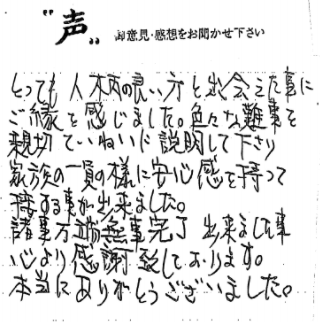 "声" 御意見・感想をお聞かせ下さい
とっても人柄の良い方と出会えた事に
ご縁を感じました。色々な難事を
親切ていねいに説明して下さり
家族の一員の様に安心感を持って
接する事が出来ました。
諸事万端無事完了出来ました事
心より感謝致しております。
本当にありがとうございました。